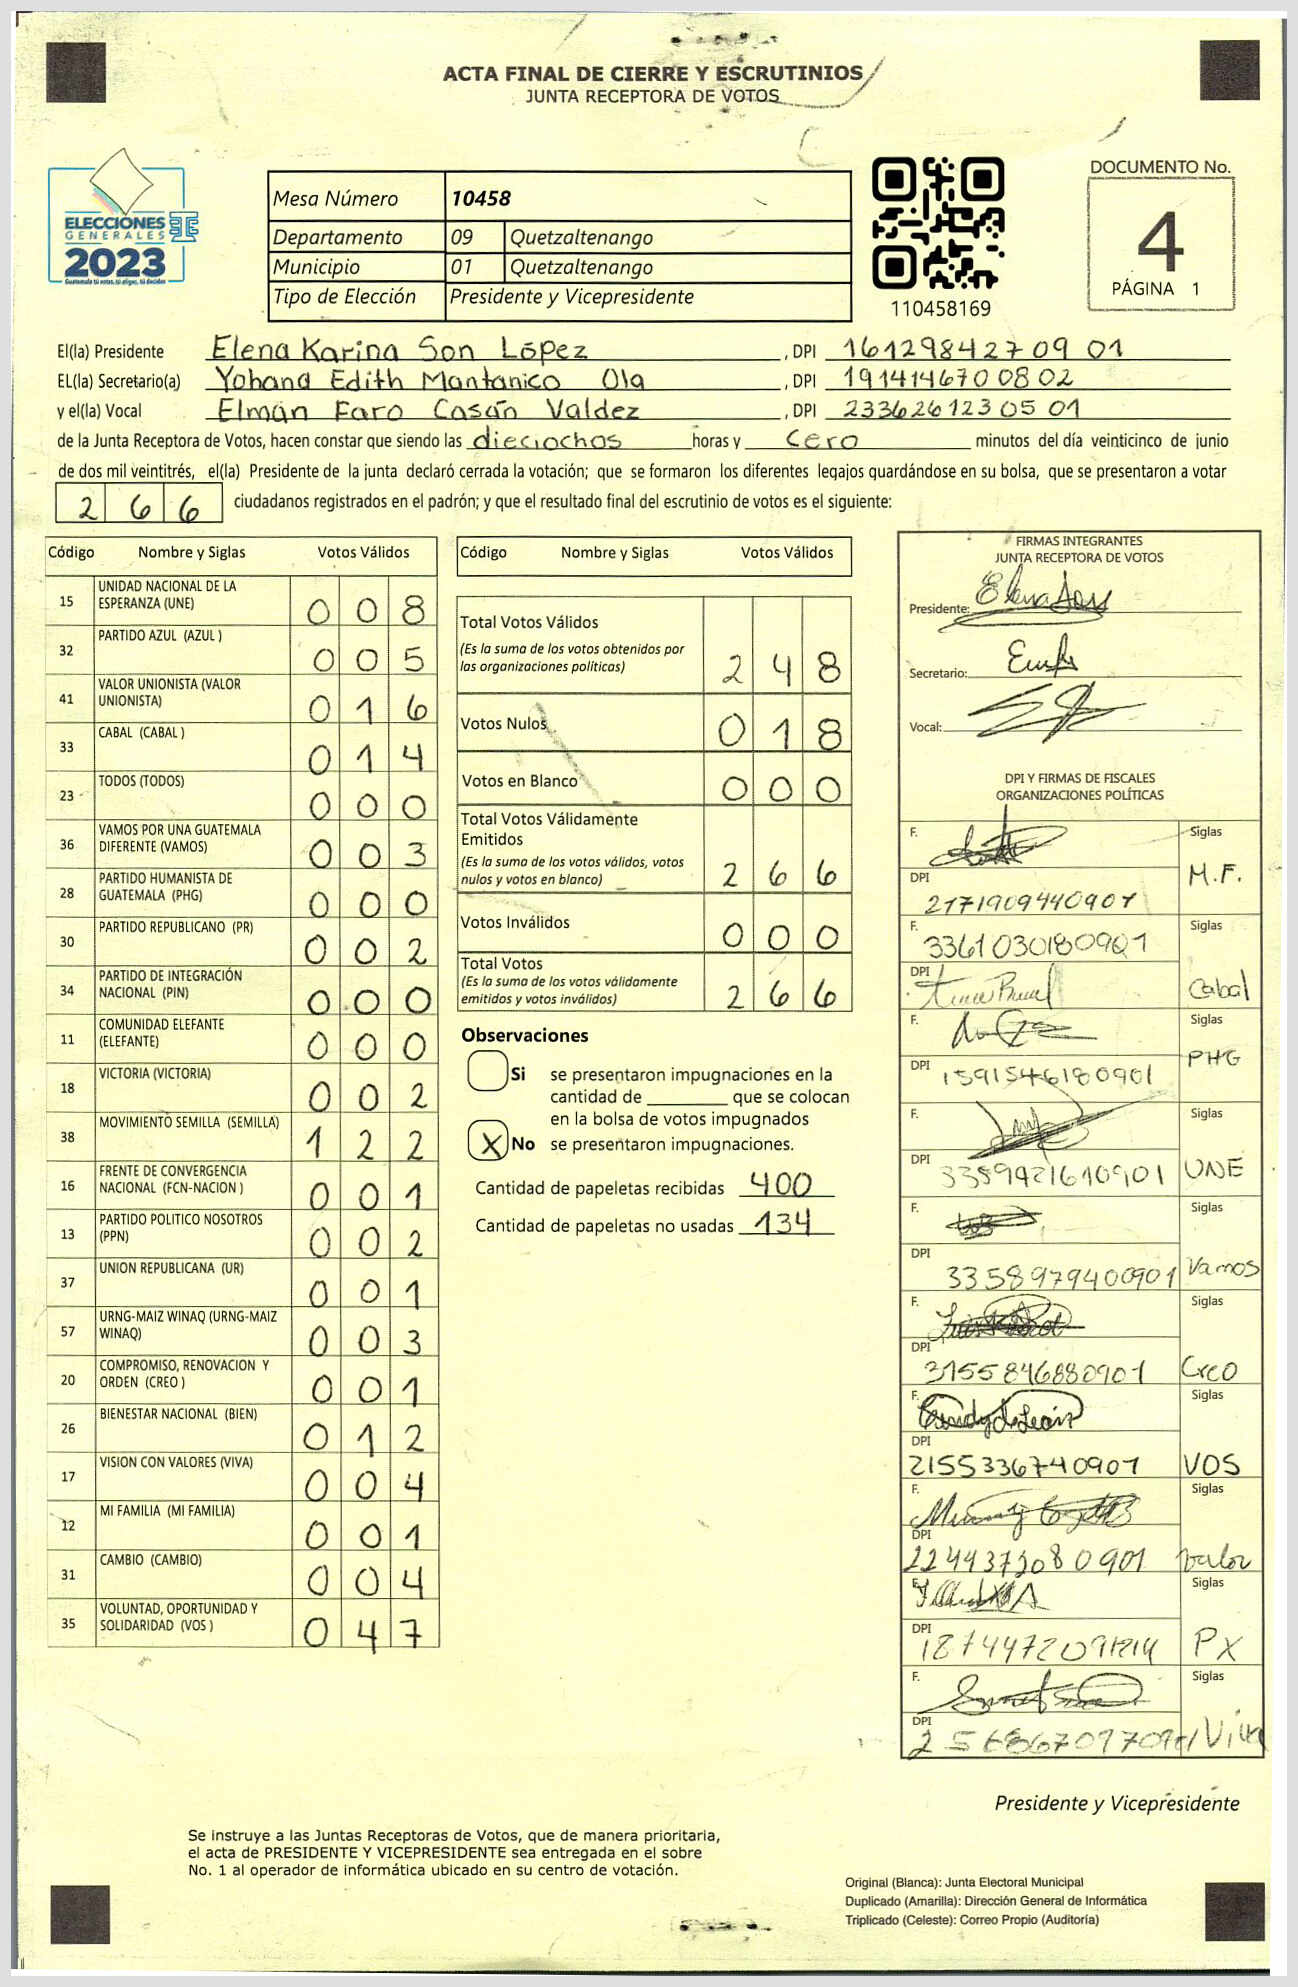 ACTA FINAL DE CIERRE Y ESCRUTINIOS
JUNTA RECEPTORA DE VOTOS
ELECCIONES
GENERALES
2023
Guatemala tú votas, tú eliges, tú decides
Mesa Número 10458
Departamento 09 Quetzaltenango
Municipio 01 Quetzaltenango
Tipo de Elección Presidente y Vicepresidente
110458169
DOCUMENTO No.
4
PÁGINA 1
El(la) Presidente Elena Karina Son López , DPI 161298427 09 01
EL(la) Secretario(a) Yohana Edith Mantanico Ola , DPI 191414670 08 02
y el(la) Vocal Elman Faro Casán Valdez , DPI 233626123 05 01
de la Junta Receptora de Votos, hacen constar que siendo las dieciochos horas y cero minutos del día veinticinco de junio
de dos mil veintitrés, el(la) Presidente de la junta declaró cerrada la votación; que se formaron los diferentes legajos guardándose en su bolsa, que se presentaron a votar
2 6 6 ciudadanos registrados en el padrón; y que el resultado final del escrutinio de votos es el siguiente:
Código Nombre y Siglas Votos Válidos
15 UNIDAD NACIONAL DE LA
ESPERANZA (UNE) 0 0 8
32 PARTIDO AZUL (AZUL ) 0 0 5
41 VALOR UNIONISTA (VALOR
UNIONISTA) 0 1 6
33 CABAL (CABAL ) 0 1 4
23 TODOS (TODOS) 0 0 0
36 VAMOS POR UNA GUATEMALA
DIFERENTE (VAMOS) 0 0 3
28 PARTIDO HUMANISTA DE
GUATEMALA (PHG) 0 0 0
30 PARTIDO REPUBLICANO (PR) 0 0 2
34 PARTIDO DE INTEGRACIÓN
NACIONAL (PIN) 0 0 0
11 COMUNIDAD ELEFANTE
(ELEFANTE) 0 0 0
18 VICTORIA (VICTORIA) 0 0 2
38 MOVIMIENTO SEMILLA (SEMILLA) 1 2 2
16 FRENTE DE CONVERGENCIA
NACIONAL (FCN-NACION ) 0 0 1
13 PARTIDO POLITICO NOSOTROS
(PPN) 0 0 2
37 UNION REPUBLICANA (UR) 0 0 1
57 URNG-MAIZ WINAQ (URNG-MAIZ
WINAQ) 0 0 3
20 COMPROMISO, RENOVACION Y
ORDEN (CREO ) 0 0 1
26 BIENESTAR NACIONAL (BIEN) 0 1 2
17 VISION CON VALORES (VIVA) 0 0 4
12 MI FAMILIA (MI FAMILIA) 0 0 1
31 CAMBIO (CAMBIO) 0 0 4
35 VOLUNTAD, OPORTUNIDAD Y
SOLIDARIDAD (VOS ) 0 4 7
Código Nombre y Siglas Votos Válidos
Total Votos Válidos
(Es la suma de los votos obtenidos por
las organizaciones políticas) 2 4 8
Votos Nulos 0 1 8
Votos en Blanco 0 0 0
Total Votos Válidamente
Emitidos
(Es la suma de los votos válidos, votos
nulos y votos en blanco) 2 6 6
Votos Inválidos 0 0 0
Total Votos
(Es la suma de los votos válidamente
emitidos y votos inválidos) 2 6 6
Observaciones
Si se presentaron impugnaciones en la
cantidad de ________ que se colocan
en la bolsa de votos impugnados
X No se presentaron impugnaciones.
Cantidad de papeletas recibidas 400
Cantidad de papeletas no usadas 134
FIRMAS INTEGRANTES
JUNTA RECEPTORA DE VOTOS
Presidente: Elena Son
Secretario:
Vocal:
DPI Y FIRMAS DE FISCALES
ORGANIZACIONES POLÍTICAS
F. Siglas
DPI M.F.
2171909440901
F. 3361030180901 Siglas
DPI Cabal
F. Siglas
DPI 1591546180901 PHG
F. Siglas
DPI 3389421610901 UNE
F. Siglas
DPI 3358979400901 Vamos
F. Siglas
DPI 3155846880901 Creo
F. Siglas
DPI
2155336740901 VOS
F. Siglas
DPI
2244372080901 Valor
F. Siglas
DPI PX
F. Siglas
DPI Viva
Presidente y Vicepresidente
Se instruye a las Juntas Receptoras de Votos, que de manera prioritaria,
el acta de PRESIDENTE Y VICEPRESIDENTE sea entregada en el sobre
No. 1 al operador de informática ubicado en su centro de votación.
Original (Blanca): Junta Electoral Municipal
Duplicado (Amarilla): Dirección General de Informática
Triplicado (Celeste): Correo Propio (Auditoría)